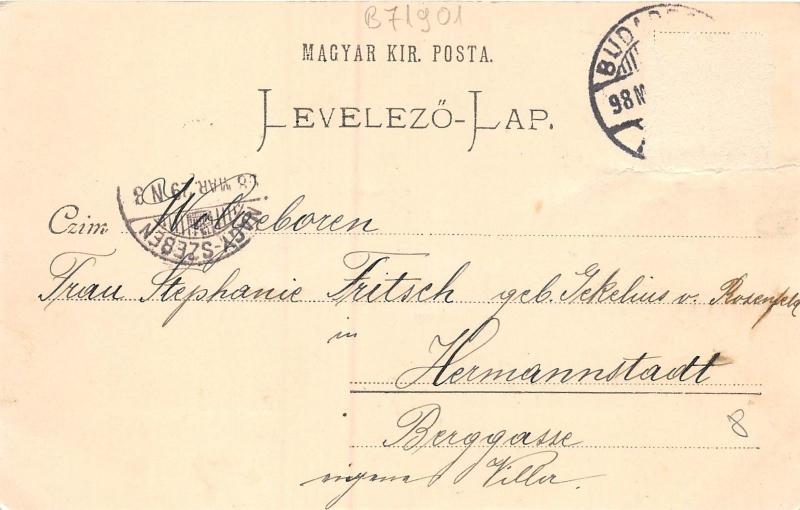 B71901
MAGYAR KIR. POSTA.
LEVELEZŐ-LAP.
BUDAPE
98 M
8 MAR. 29 N 8
NAGY-SZEBEN
Czim Wohlgeboren
Frau Stephanie Fritsch geb. Jekelius v. Rosenfeld
in
Hermannstadt
Berggasse
eigene Villa.
8